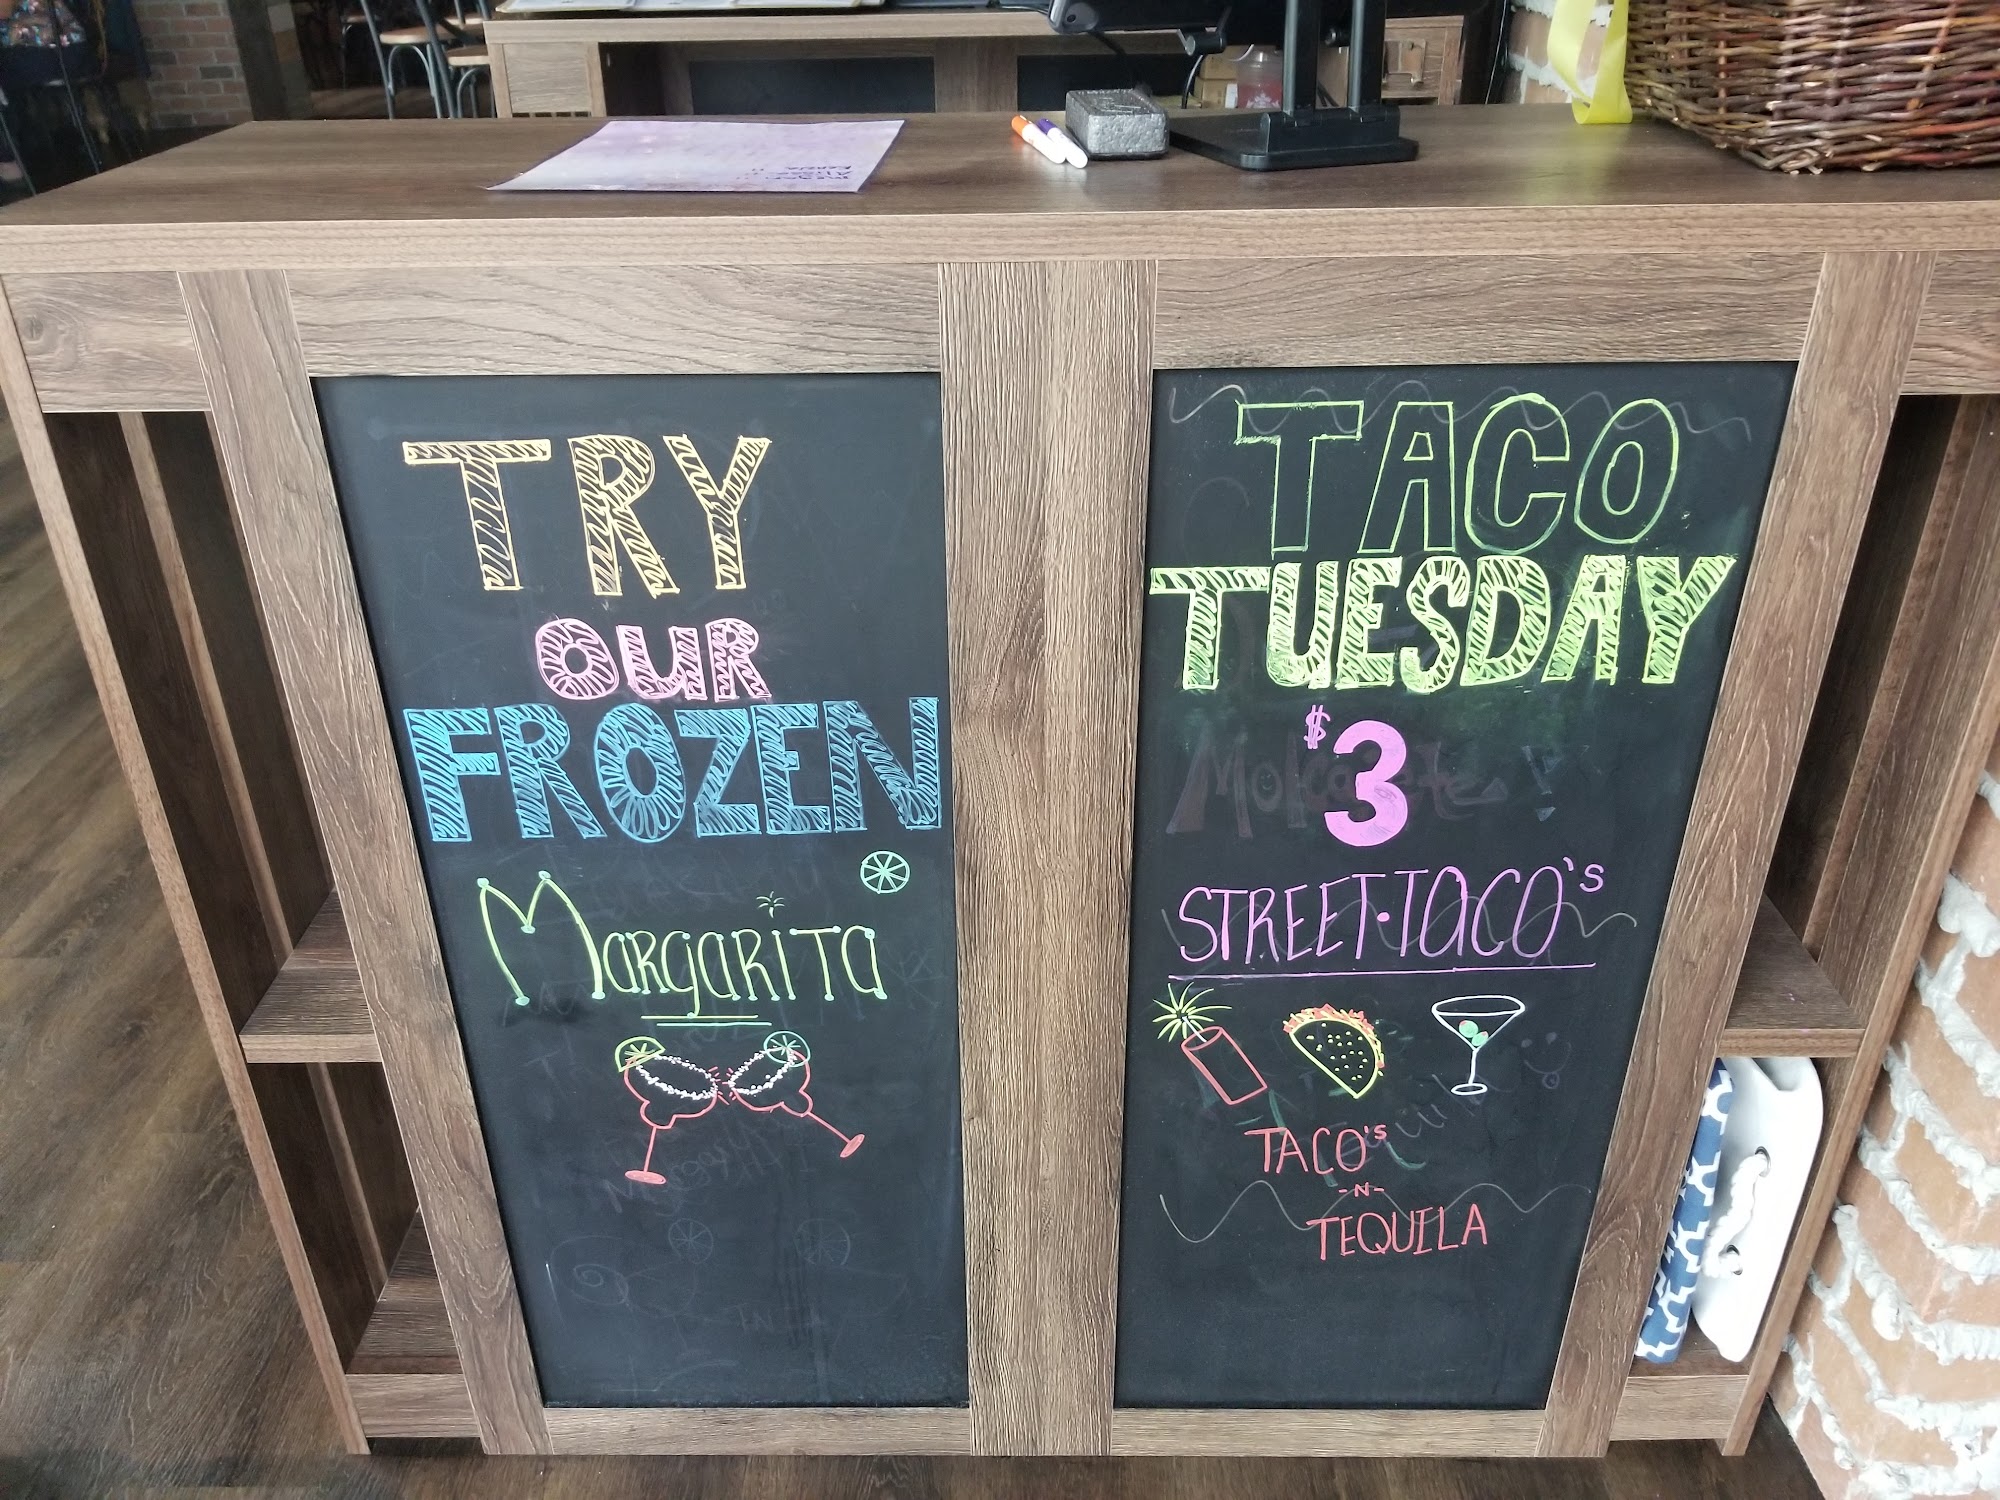 TRY
OUR
FROZEN
MARGARITA
TACO
TUESDAY
$3
STREET·TACO's
TACO's
-N-
TEQUILA